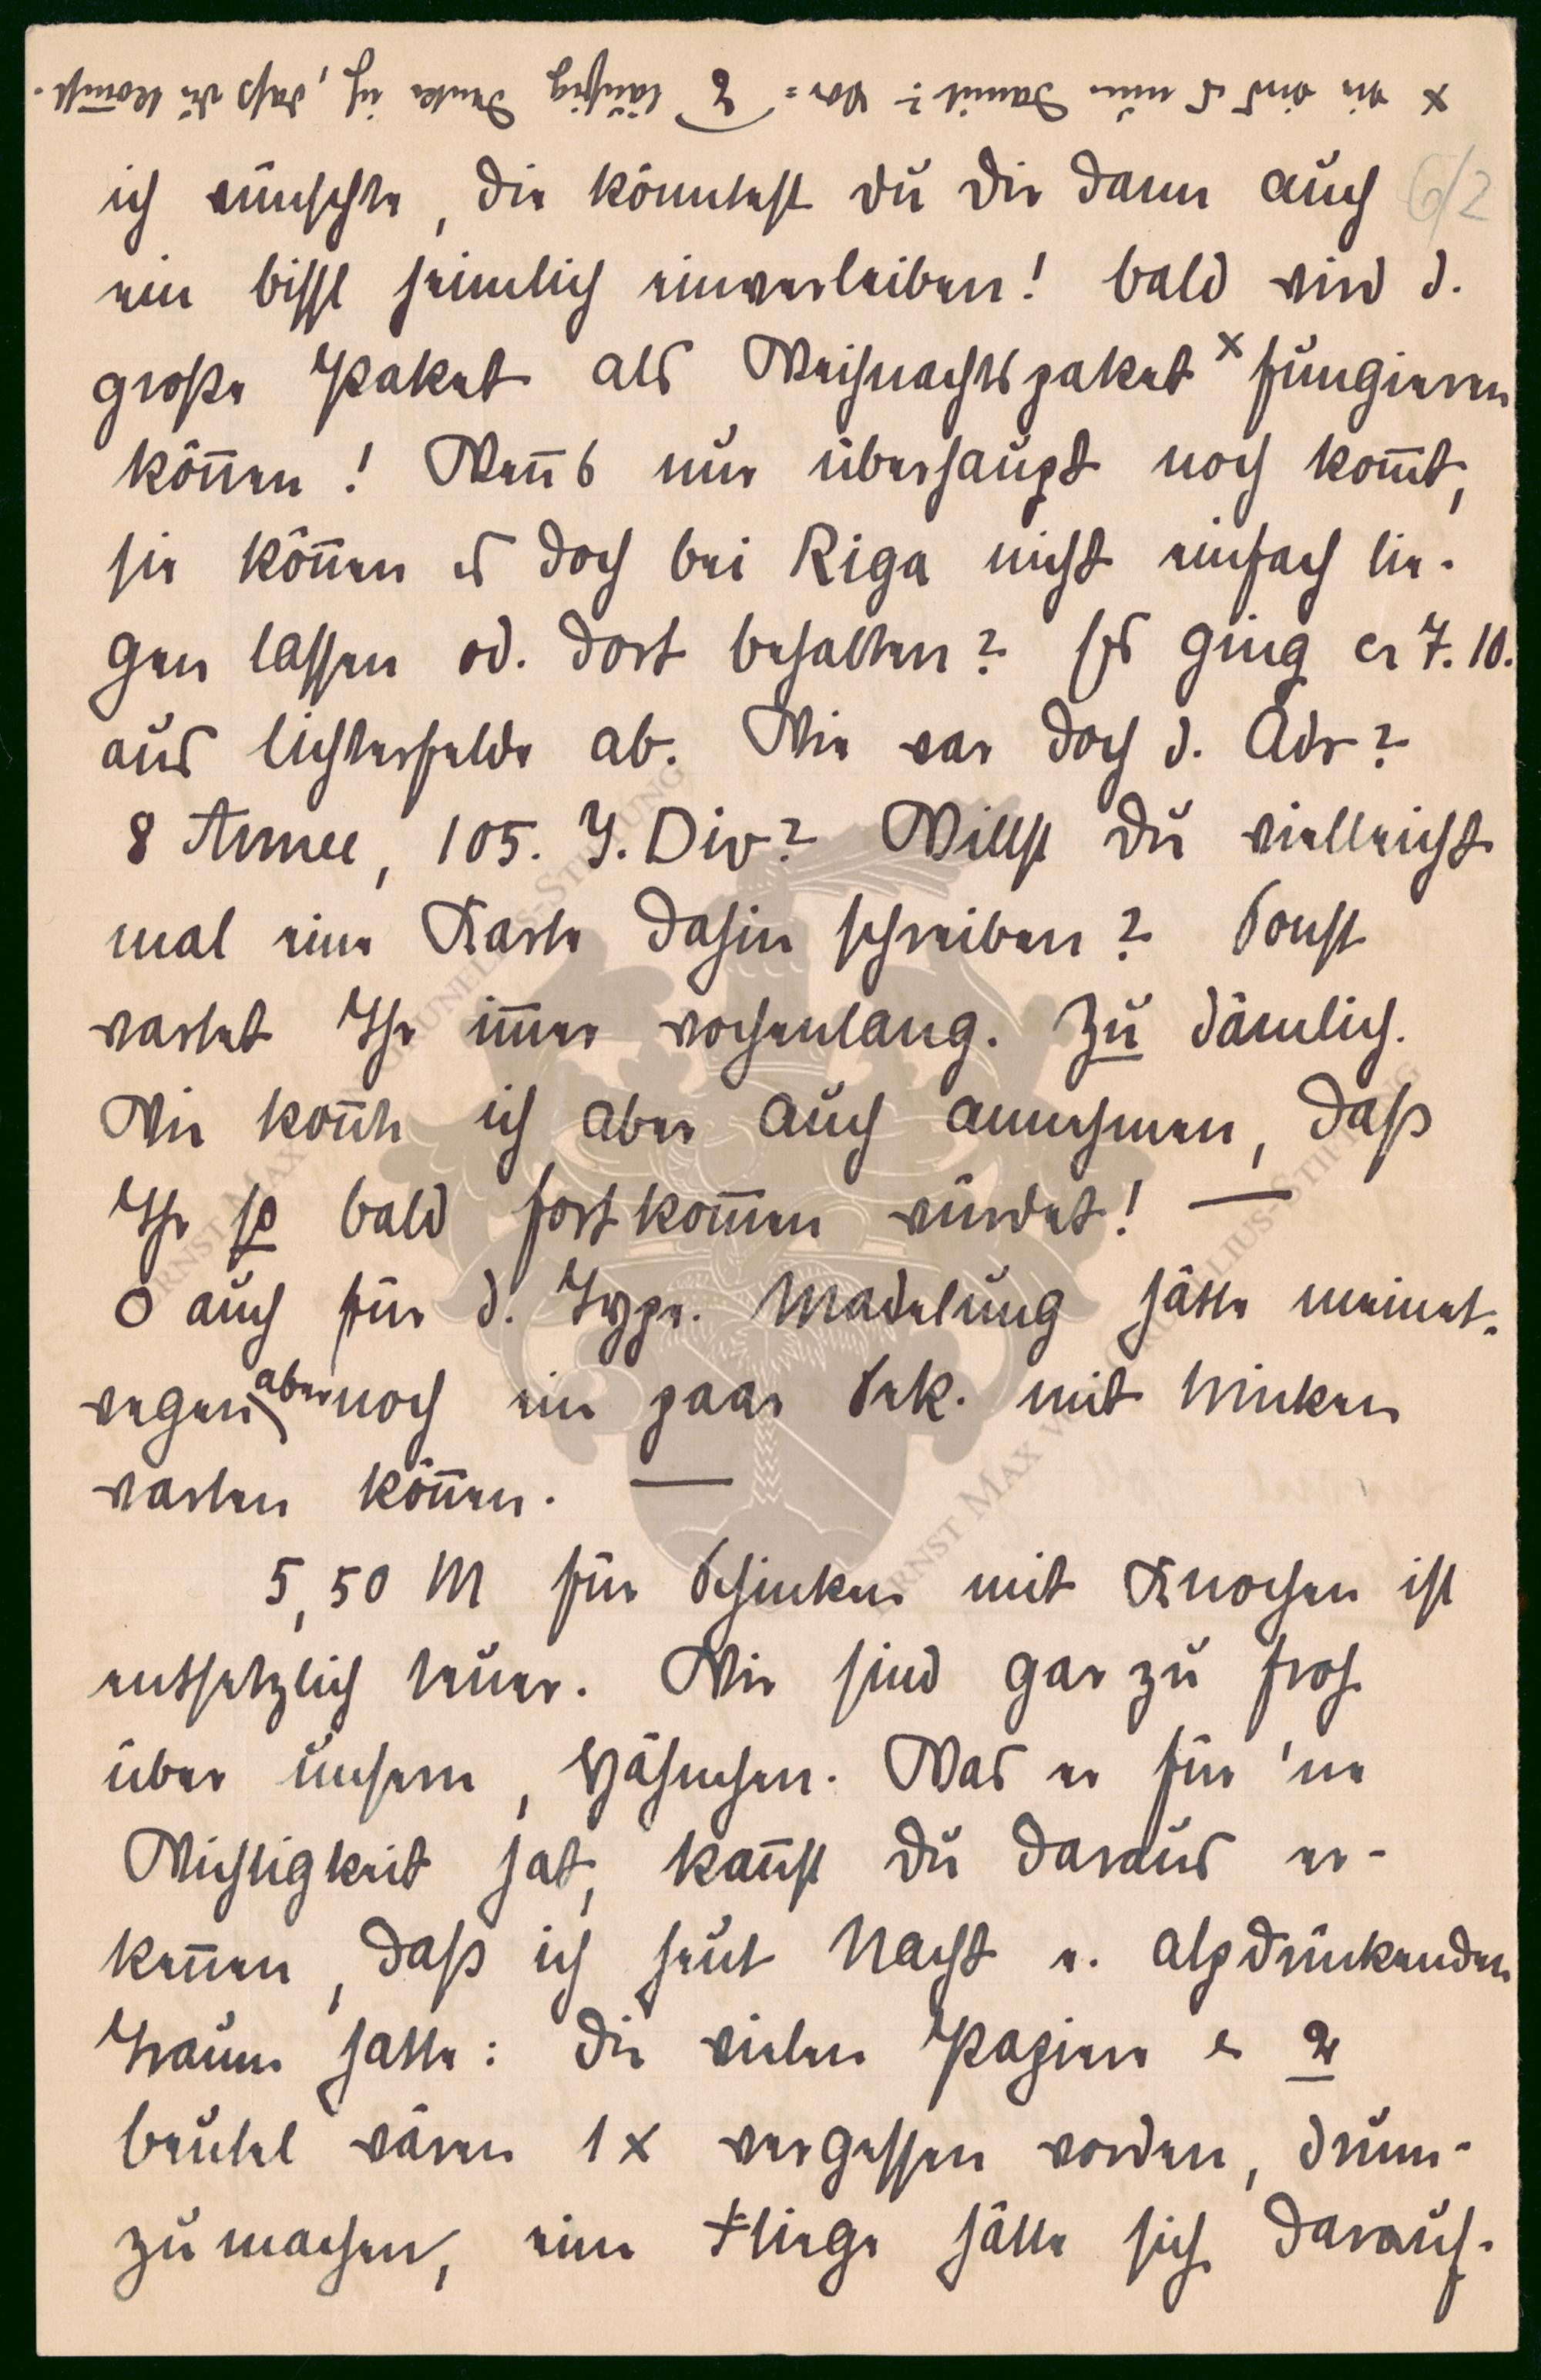 x wie wird es nun damit? Vor=läufig denke ich, daß du kom̅st.
ich wünschte, die könntest du dir dann auch 6/2
ein bissl heimlich einverleiben! bald wird d.
große Paket als Weihnachtspaket x fungieren
kön̅en! Wen̅s nur überhaupt noch kom̅t,
sie kön̅en es doch bei Riga nicht einfach lie-
gen lassen od. dort behalten? Es ging ca 7. 10.
aus Lichterfelde ab. Wie war doch d. Adr?
8 Armee, 105. J. Div? Willst du vielleicht
mal eine Karte dahin schreiben? Sonst
wartet Ihr im̅er wochenlang. Zu dämlich.
Wie kon̅te ich aber auch annehmen, daß
Ihr so bald fortkom̅en würdet! —
O auch für d. Type. Madelung hätte meinet-
wegen aber noch ein paar Sek. mit Winken
warten kön̅en. —
5,50 M für Schinken mit Knochen ist
entsetzlich teuer. Wir sind gar zu froh
über unsern, Hähnchen. Was er für 'ne
Wichtigkeit hat, kan̅st du daraus er-
ken̅en, daß ich heut Nacht e. alpdrückenden
Traum hatte: die vielen Papiere &
Beutel wären 1x vergessen worden, drum-
zumachen, eine Fliege hätte sich darauf-